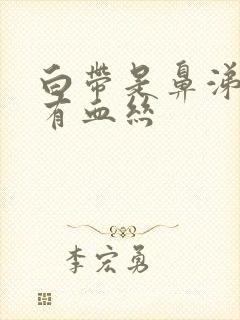 白帶是鼻涕
有血絲
李宏勇